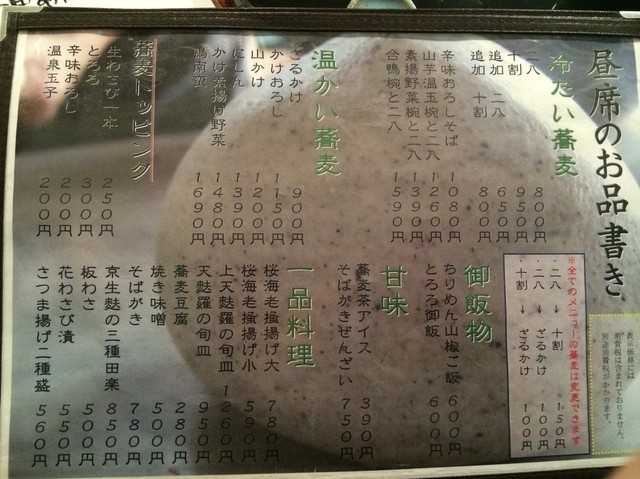 昼席のお品書き
表示価格には
消費税は含まれておりません。
別途消費税がかかります。
冷たい蕎麦
二八 800円
十割 950円
追加 二八 650円
追加 十割 800円
辛味おろしそば 1080円
山芋温玉椀と二八 1260円
素揚野菜椀と二八 1390円
合鴨椀と二八 1590円
温かい蕎麦
ざるかけ 900円
かけおろし 1150円
山かけ 1200円
にしん 1390円
かけ素揚げ野菜 1480円
鴨南蛮 1690円
蕎麦トッピング
生わさび一本 250円
とろろ 300円
辛味おろし 200円
温泉玉子 200円
※全てのメニューの蕎麦は変更できます
・二八 → 十割 150円
・二八 → ざるかけ 100円
・十割 → ざるかけ 100円
御飯物
ちりめん山椒ご飯 600円
とろろ御飯 600円
甘味
蕎麦茶アイス 390円
そばがきぜんざい 750円
一品料理
桜海老掻揚げ大 780円
桜海老掻揚げ小 590円
上天麩羅の旬皿 1260円
天麩羅の旬皿 950円
蕎麦豆腐 280円
焼き味噌 500円
そばがき 780円
京生麩の三種田楽 850円
板わさ 500円
花わさび漬 550円
さつま揚げ二種盛 560円